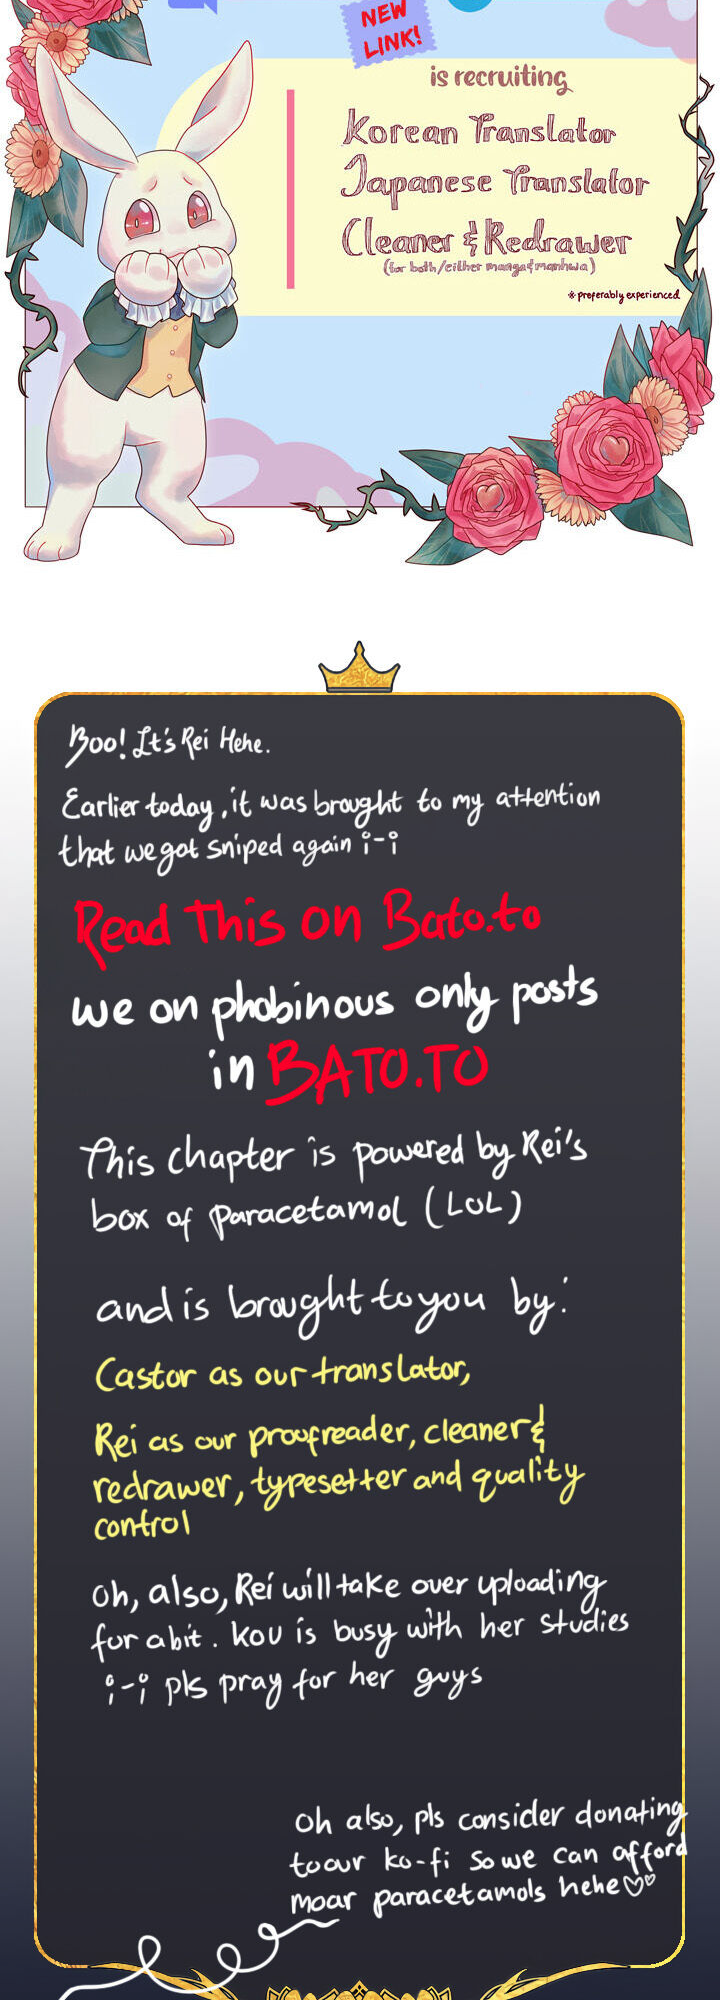 NEW
LINK!
is recruiting
Korean Translator
Japanese Translator
Cleaner & Redrawer
(for both/either manga & manhwa)
* preferably experienced
Boo! It's Rei Hehe.
Earlier today, it was brought to my attention
that we got sniped again ;-;
Read This on Bato.to
we on phobinous only posts
in BATO.TO
This chapter is powered by Rei's
box of paracetamol (LOL)
and is brought to you by:
Castor as our translator,
Rei as our proofreader, cleaner &
redrawer, typesetter and quality
control
oh, also, Rei will take over uploading
for a bit. Kou is busy with her studies
;-; pls pray for her guys
oh also, pls consider donating
to our ko-fi so we can afford
moar paracetamols hehe♡♡